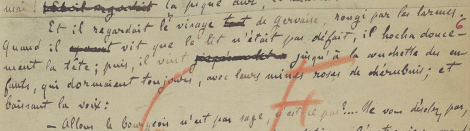 mai ! la pique dur
Et il regardait le visage de Gervaise, rougi par les larmes.
Quand il vit que le lit n'était pas défait, il hocha douce-
ment la tête ; puis, il vint jusqu'à la couchette des en-
fants, qui dormaient toujours, avec leurs mines roses de chérubins ; et
baissant la voix :
— Allons, le bourgeois n'est pas sage, c'est ça ?.... Ne vous désolez pas,
6